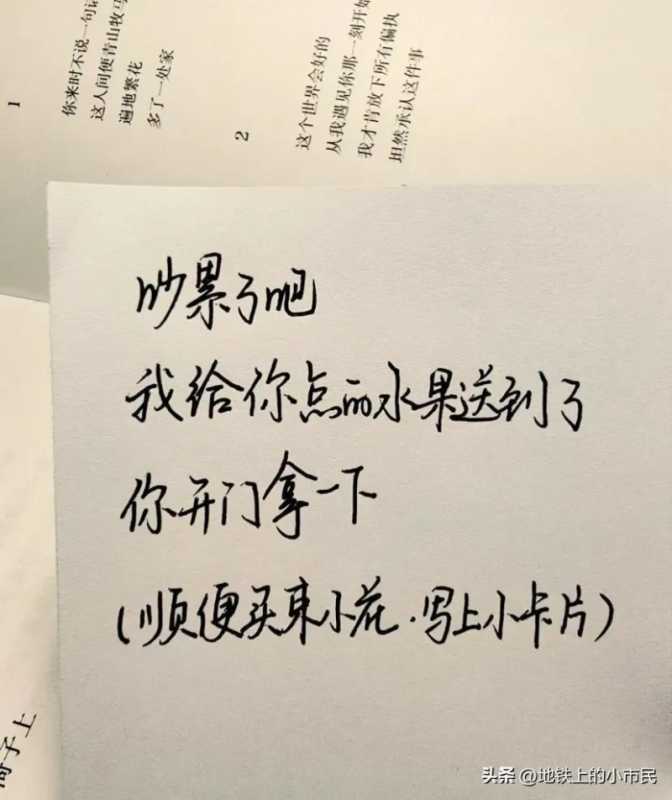 1
你来时不说一句话
这人间便青山牧马
遍地繁花
多了一处家
2
这个世界会好的
从我遇见你那一刻开始
我才肯放下所有偏执
坦然承认这件事
吵累了吧
我给你点的水果送到了
你开门拿一下
(顺便买束小花.写上小卡片)
子上
头条 @地铁上的小市民